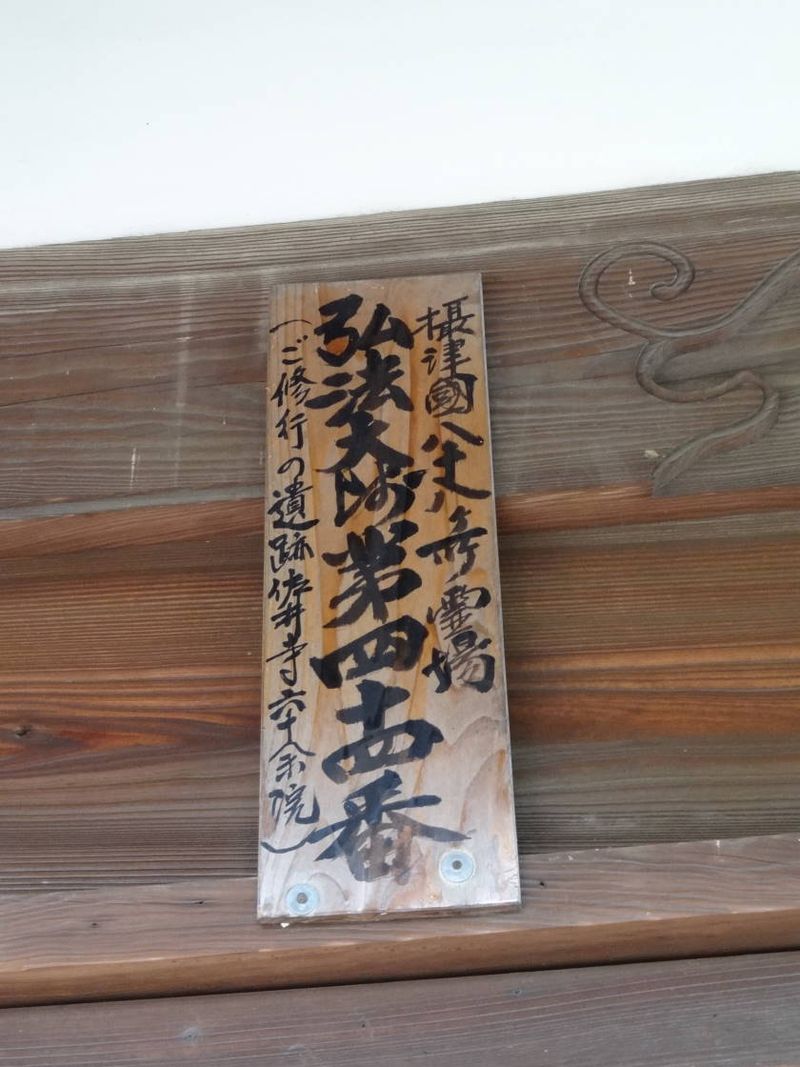 摂津國八十八ヶ所霊場
弘法大師第四十四番
(ご修行の遺跡佐井寺六十余院)